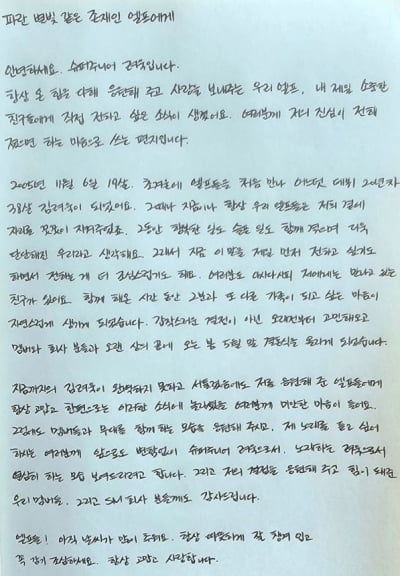 파란 별빛 같은 존재인 엘프에게
안녕하세요. 슈퍼주니어 려욱입니다.
항상 온 힘을 다해 응원해 주고 사랑을 보내주는 우리 엘프, 내 제일 소중한
친구들에게 직접 전하고 싶은 소식이 생겼어요. 여러분께 저의 진심이 전해
졌으면 하는 마음으로 쓰는 편지입니다.
2005년 11월 6일 19살. 초겨울에 엘프들을 처음 만나 어느덧 데뷔 20년차
38살 김려욱이 되었어요. 그때나 지금이나 항상 우리 엘프들은 저의 곁에
자리를 꼿꼿이 지켜주었죠. 그동안 행복한 일도 슬픈 일도 함께 겪으며 더욱
단단해진 우리라고 생각해요. 그래서 지금 이 말을 제일 먼저 전하고 싶기도
하면서 전하는 게 더 조심스럽기도 해요. 여러분도 아시다시피 저에게는 만나고 있는
친구가 있어요. 함께 해온 시간 동안 그분과 또 다른 가족이 되고 싶은 마음이
자연스럽게 생기게 되었습니다. 갑작스러운 결정이 아닌 오래전부터 고민해오고
멤버와 회사 분들과 오랜 상의 끝에 오는 봄 5월 말 결혼식을 올리게 되었습니다.
지금까지의 김려욱이 완벽하지 못하고 서툴렀음에도 저를 응원해 준 엘프들에게
항상 고맙고 한편으로는 이러한 소식에 놀라웠을 여러분께 미안한 마음이 들어요.
그럼에도 멤버들과 무대를 함께 하는 모습을 응원해 주시고, 제 노래를 듣고 싶어
하시는 여러분께 앞으로도 변함없이 슈퍼주니어 려욱으로서, 노래하는 려욱으로서
열심히 하는 모습 보여드리려고 합니다. 그리고 저의 결정을 응원해 주고 힘이 돼준
우리 멤버들, 그리고 SM 회사 분들께도 감사드립니다.
엘프들! 아직 날씨가 많이 추워요. 항상 따뜻하게 잘 챙겨 입고
꼭 감기 조심하세요. 항상 고맙고 사랑합니다.